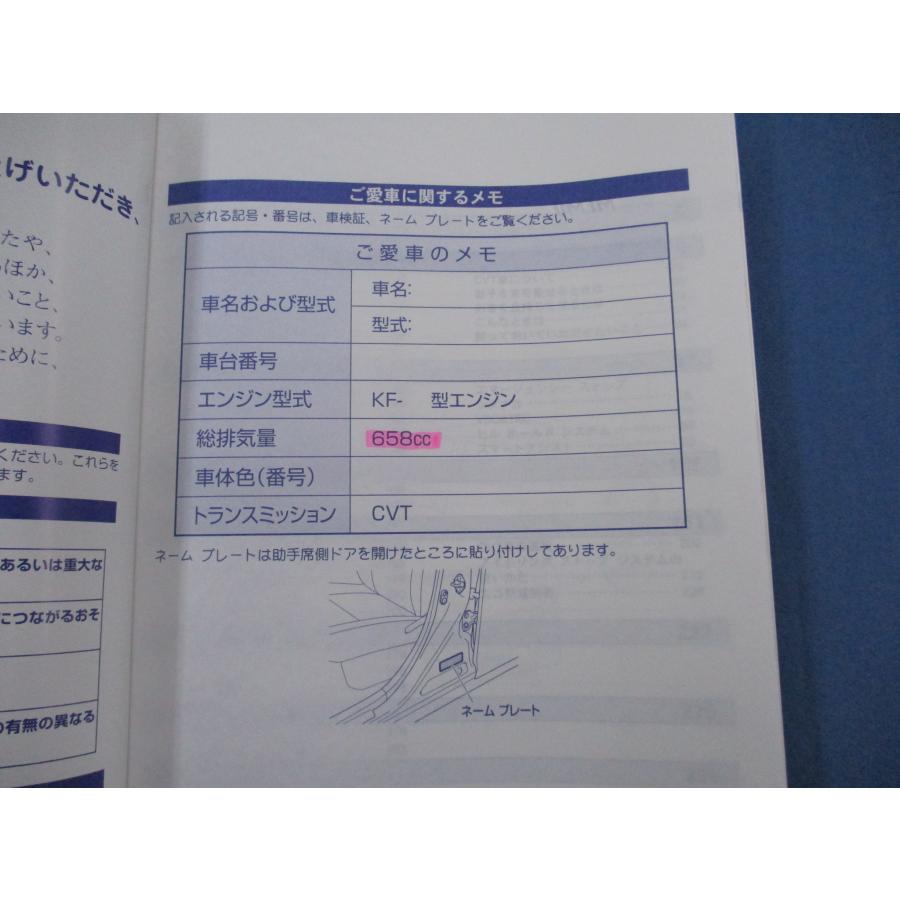 げいただき、
たや、
ほか、
いこと、
います。
ために、
ください。これらを
ます。
あるいは重大な
につながるおそ
の有無の異なる
ご愛車に関するメモ
記入される記号・番号は、車検証、ネーム プレートをご覧ください。
ご愛車のメモ
車名および型式
車名:
型式:
車台番号
エンジン型式 KF- 型エンジン
総排気量 658cc
車体色(番号)
トランスミッション CVT
ネーム プレートは助手席側ドアを開けたところに貼り付けしてあります。
ネーム プレート